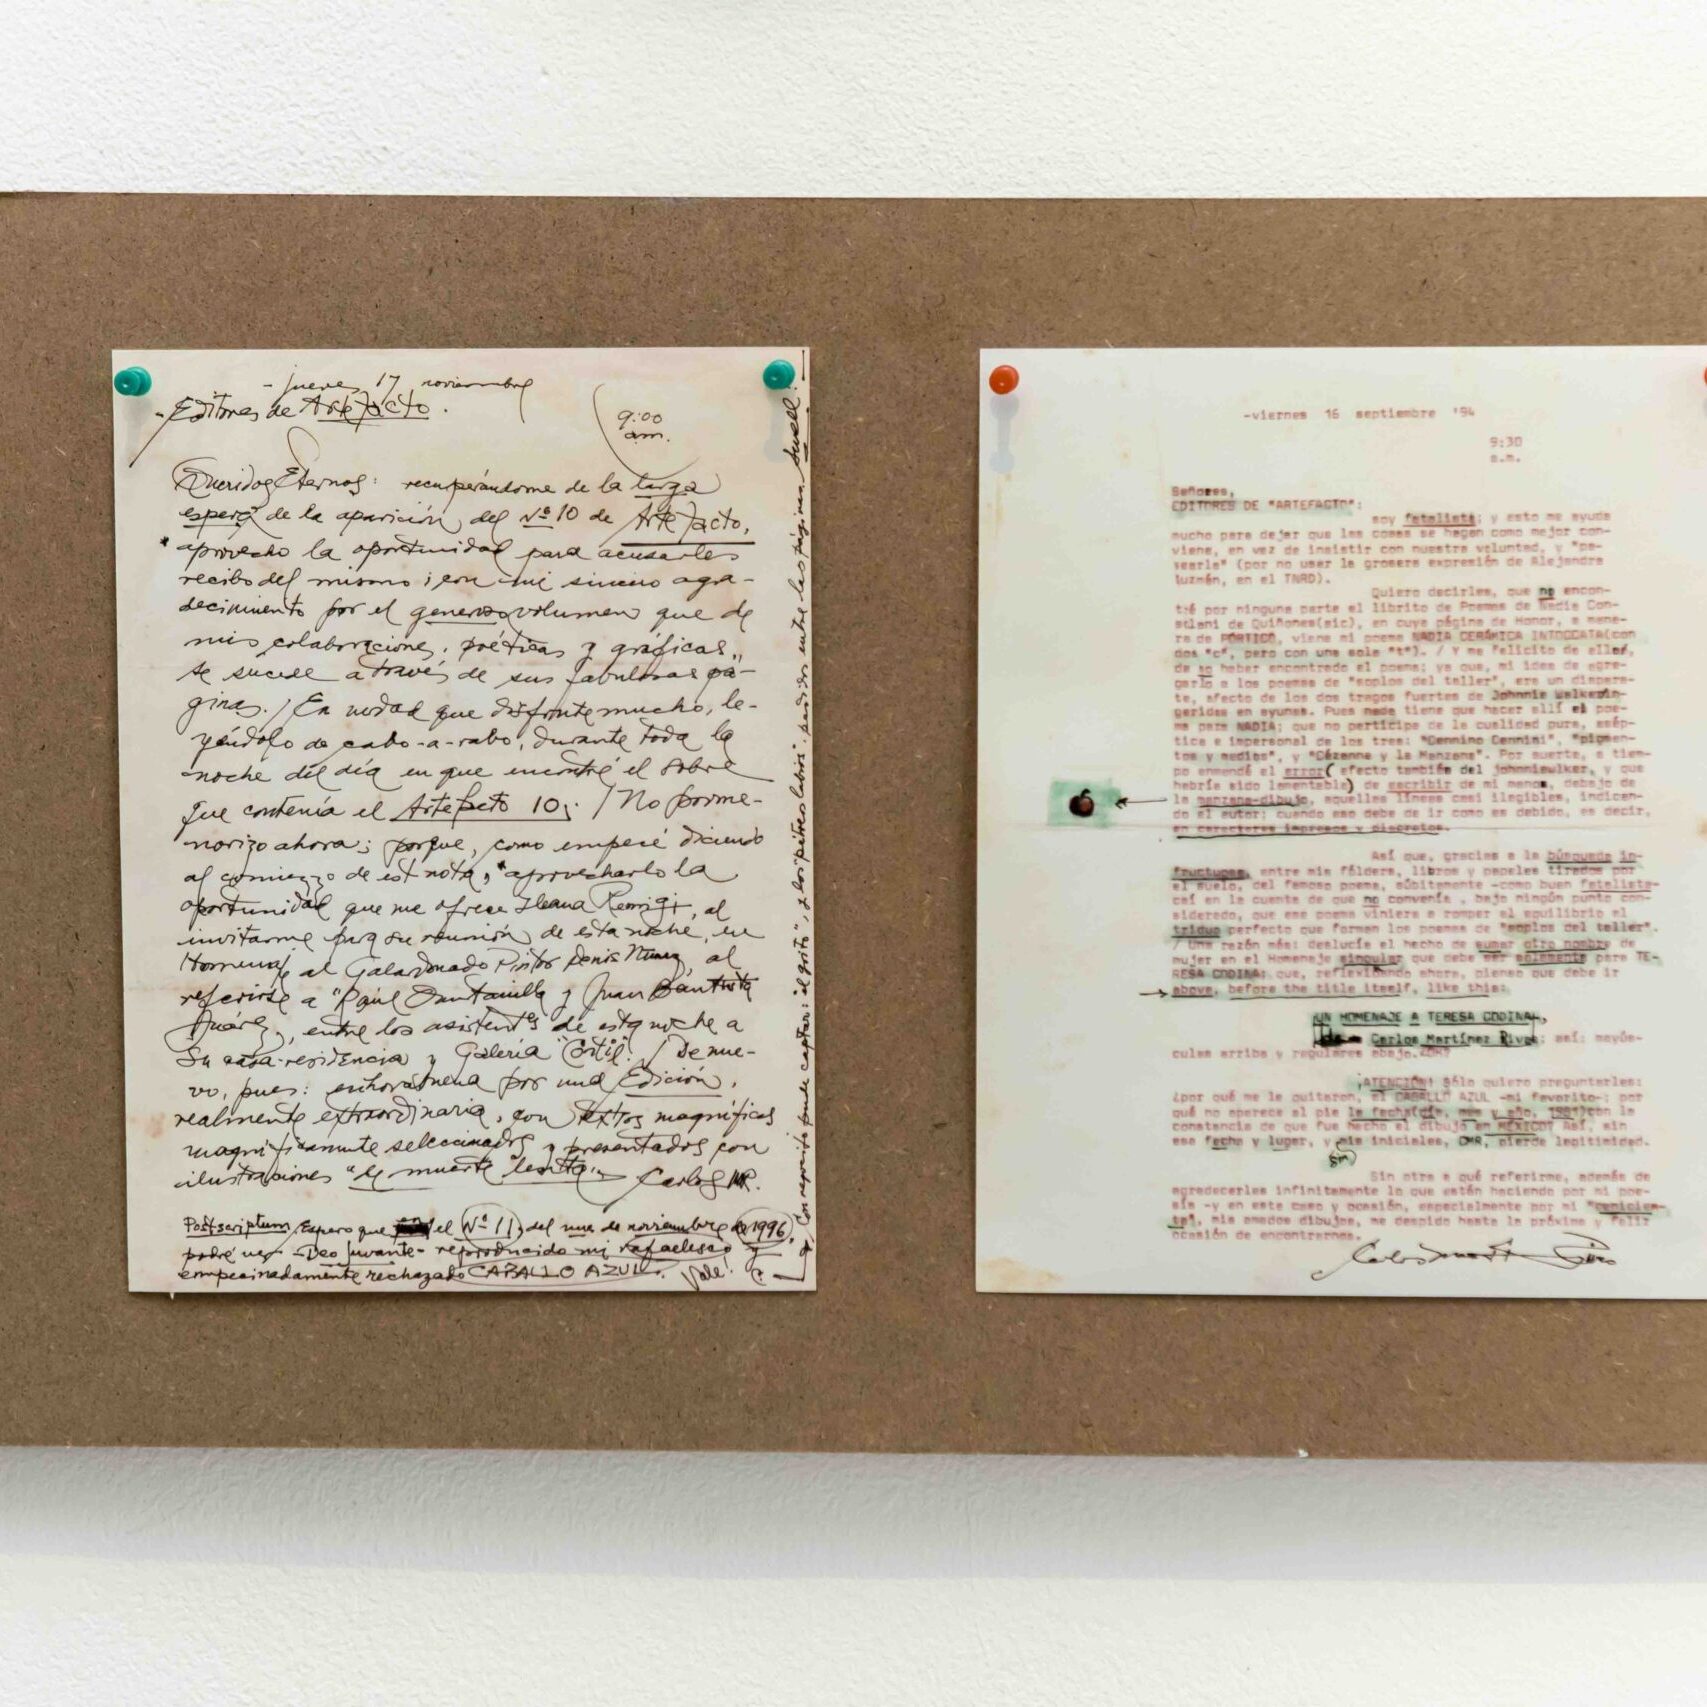 - jueves, 17 noviembre
- Editores de ArteFacto.
9:00
am.
Queridos Eternos: recuperándome de la larga
espera de la aparición del Nº 10 de ArteFacto,
*aprovecho la oportunidad para acusarles
recibo del mismo; con mi sincero agra-
decimiento por el generoso volumen que de
mis colaboraciones, poéticas y gráficas,
se sucede a través de sus fabulosas pá-
ginas. / En verdad que disfruté mucho, le-
yéndolo de cabo-a-rabo, durante toda la
noche del día en que encontré el sobre
que contenía el Artefacto 10; / No porme-
norizo ahora; porque, como empecé diciendo
al comienzo de est nota, *aprovecharlo la
oportunidad que me ofrece Ileana, al
invitarme para su reunión de esta noche, en
Homenaje al Galardonado Pintor Denis Nuñez, al
referirse a "Raúl Quintanilla y Juan Bautista
Juárez, entre los asistentes de esta noche a
su casa-residencia y Galería. / De nue-
vo, pues: enhorabuena por una Edición,
realmente extraordinaria, con textos magníficos
magníficamente seleccionados y presentados con
ilustraciones "de muerte lenta". Carlos MR.
Postscriptum, Espero que el Nº 11, del mes de noviembre de 1996,
podré ver -Deo juvante- reproducido mi rafaelesco y
empecinadamente rechazado CABALLO AZUL. Vale!
Con regocijo pude captar: "el grito", y los "pétreos labios" perdidos entre las páginas.
-viernes 16 septiembre '94
9:30
a.m.
Señores,
EDITORES DE "ARTEFACTO":
soy fatalista; y esto me ayuda
mucho para dejar que las cosas se hagan como mejor con-
viene, en vez de insistir con nuestra voluntad, y "pa-
searla" (por no usar la grosera expresión de Alejandra
Guzmán, en el TNRD).
Quiero decirles, que no encon-
tré por ninguna parte el librito de Poemas de Nadia Con-
stlani de Quiñones(sic), en cuya página de Honor, a mane-
ra de PÓRTICO, viene mi poema NADIA CERÁMICA INTOCCATA(con
dos "c", pero con una sola "t"). / Y me felicito de ello,
de no haber encontrado el poema; ya que, mi idea de agre-
garlo a los poemas de "soplos del taller", era un dispara-
te, efecto de los dos tragos fuertes de Johnnie Walker in-
geridos en ayunas. Pues nada tiene que hacer allí el poe-
ma para NADIA; que no participa de la cualidad pura, asép-
tica e impersonal de los tres: "Cennino Cennini", "pigmen-
tos y medios", y "Cézanne y la Manzana". Por suerte, a tiem-
po enmendé el error( efecto también del johnniewalker, y que
habría sido lamentable) de escribir de mi mano, debajo de
la manzana-dibujo, aquellas líneas casi ilegibles, indican-
do el autor; cuando eso debe de ir como es debido, es decir,
en caracteres impresos y discretos.
Así que, gracias a la búsqueda in-
fructuosa, entre mis fólders, libros y papeles tirados por
el suelo, del famoso poema, súbitamente -como buen fatalista-
caí en la cuenta de que no convenía, bajo ningún punto con-
siderado, que ese poema viniera a romper el equilibrio el
triduo perfecto que forman los poemas de "soplos del taller".
/ Una razón más: deslucía el hecho de sumar otro nombre de
mujer en el Homenaje singular que debe ser solamente para TE-
RESA CODINA; que, reflexionando ahora, pienso que debe ir
above, before the title itself, like this:
UN HOMENAJE A TERESA CODINA,
de Carlos Martínez Rivas; así: mayús-
culas arriba y regulares abajo.
¡ATENCIÓN! Sólo quiero preguntarles:
¿por qué me le quitaron, el CABALLO AZUL -mi favorito-; por
qué no aparece al pie la fecha(día, mes y año, 1981)con la
constancia de que fue hecho el dibujo en MÉXICO? Así, sin
esa fecha y lugar, y sin
mis iniciales, CMR, pierde legitimidad.
Sin otra a qué referirme, además de
agradecerles infinitamente lo que están haciendo por mi poe-
sía -y en este caso y ocasión, especialmente por mi "cenicien-
ta", mis amados dibujos, me despido hasta la próxima y feliz
ocasión de encontrarnos.
Carlos Martínez Rivas